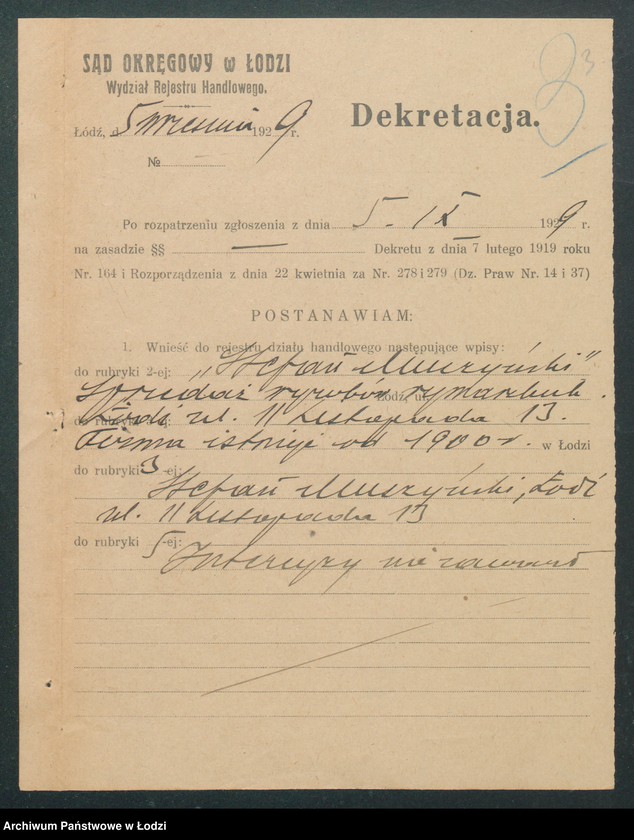 SĄD OKRĘGOWY w ŁODZI
Wydział Rejestru Handlowego.
Łódź, d. 5 września 1929 r.
№ —
Dekretacja.
3
3
Po rozpatrzeniu zgłoszenia z dnia 5. IX 1929 r.
na zasadzie §§ — Dekretu z dnia 7 lutego 1919 roku
Nr. 164 i Rozporządzenia z dnia 22 kwietnia za Nr. 278 i 279 (Dz. Praw Nr. 14 i 37)
POSTANAWIAM:
1. Wnieść do rejestru działu handlowego następujące wpisy:
do rubryki 2-ej: "Stefan Muszyński"
Sprzedaż wyrobów rymarskich. Łódź, ul.
do rubryki Łódź ul. 11 Listopada 13.
Firma istnieje od 1900 r. w Łodzi
do rubryki 3-ej:
Stefan Muszyński, Łódź
ul. 11 Listopada 13
do rubryki 5-ej:
Intercyzy nie zawarł
Archiwum Państwowe w Łodzi